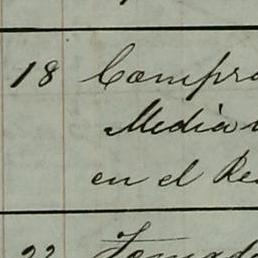 18 Compra
Media
en el Re
22 Tomada